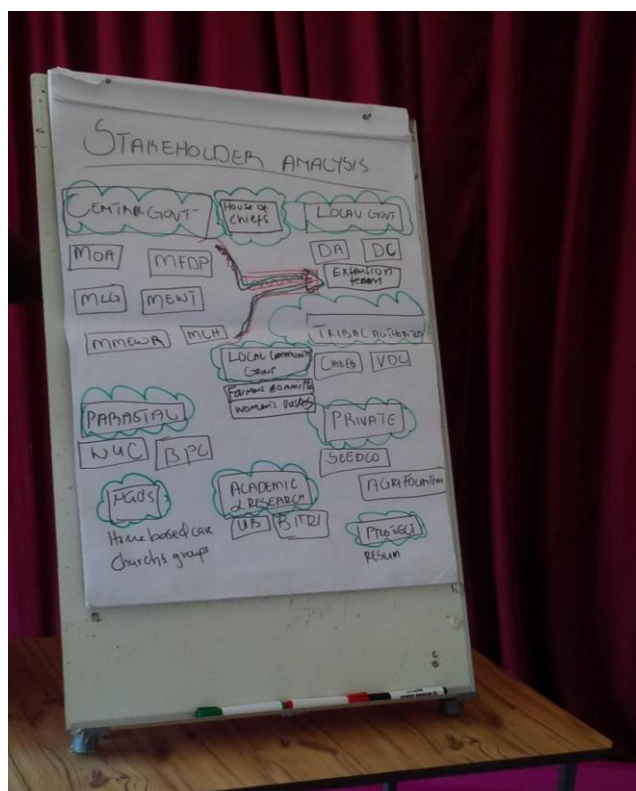 STAKEHOLDER ANALYSIS
CENTRAL GOVT-
House of
chiefs
LOCAL GOVT
MOA
MFDP
DA
DC
Extension
team
MLG
MEWT
MMEWR
MLH
TRIBAL AUTHORITY
LOCAL COMMUNITY
Group
Farmers Committe
Women's
CHIEFS
VDC
PARASTAL
PRIVATE
WUC
BPC
SEEDCO
NGOS
ACADEMIC
& RESEARCH
AGRIFOUNTAIN
Home based care
Churchs groups
UB
BITRI
PROJECT
RESUM